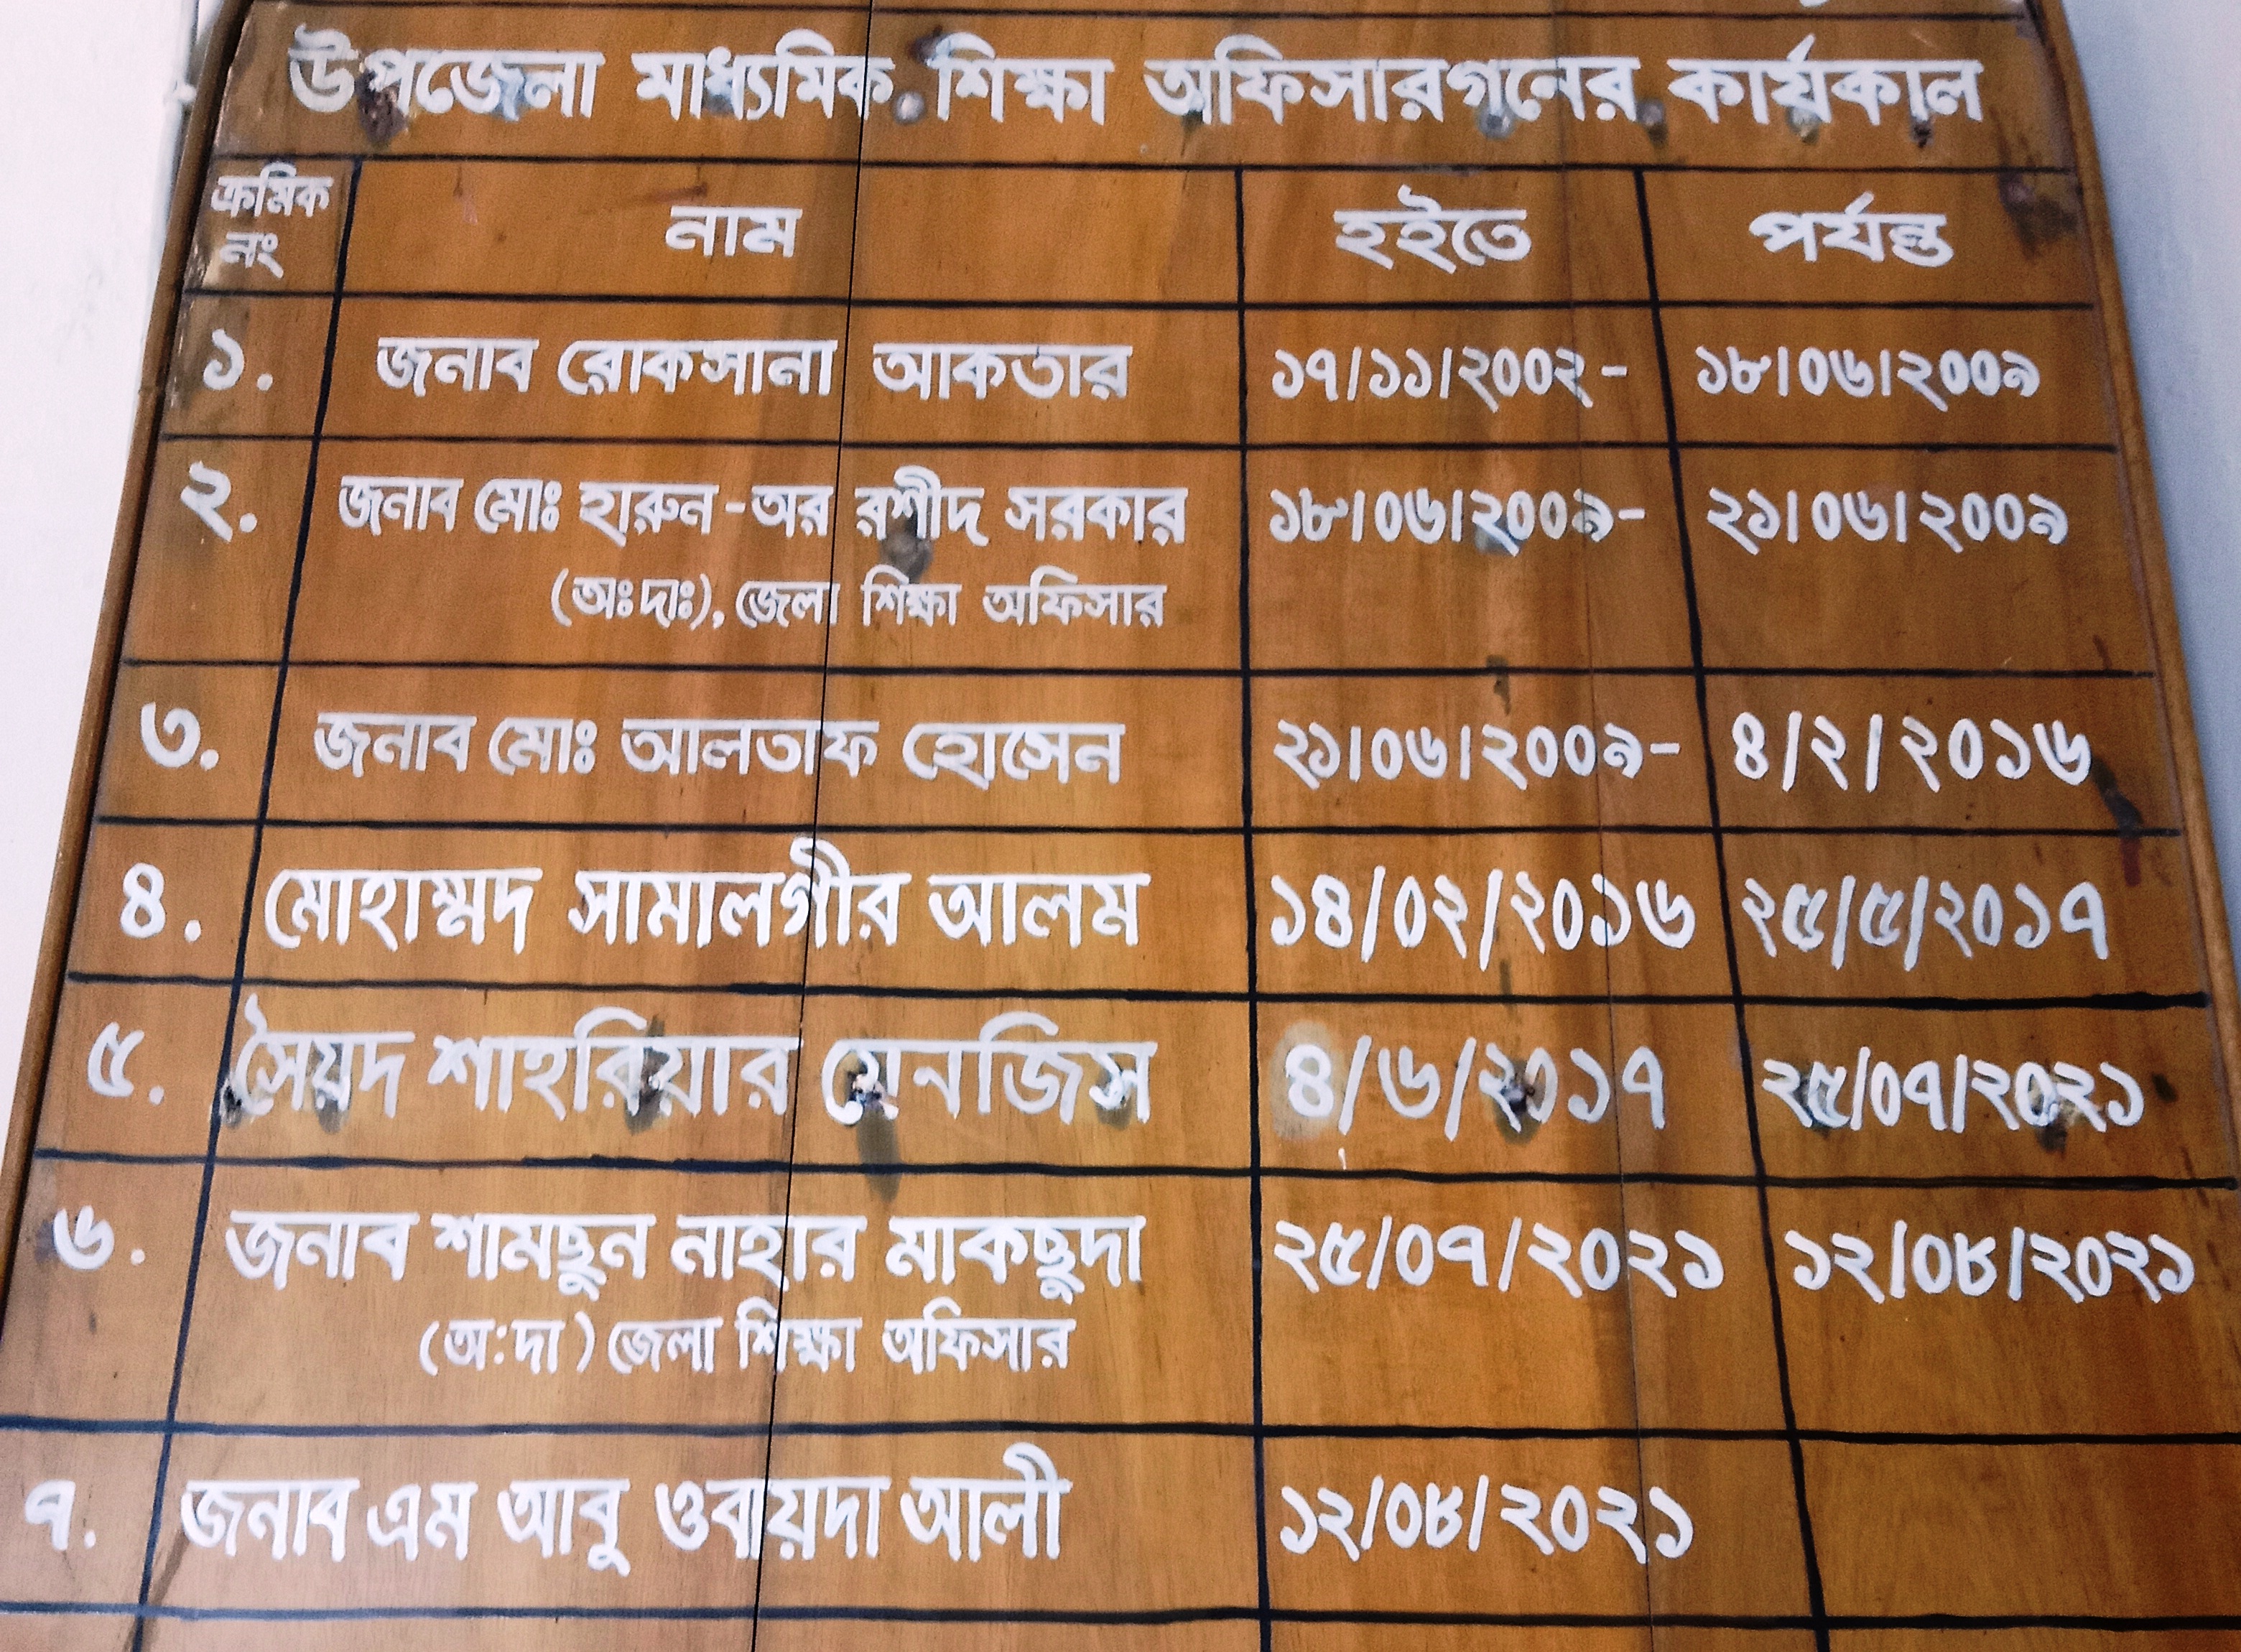 উপজেলা মাধ্যমিক শিক্ষা অফিসারগনের কার্যকাল
ক্রমিক নং নাম হইতে পর্যন্ত
১. জনাব রোকসানা আকতার ১৭/১১/২০০২ - ১৮/০৬/২০০৯
২. জনাব মোঃ হারুন-অর রশীদ সরকার ১৮/০৬/২০০৯- ২১/০৬/২০০৯
(অঃদাঃ), জেলা শিক্ষা অফিসার
৩. জনাব মোঃ আলতাফ হোসেন ২১/০৬/২০০৯- ৪/২/২০১৬
৪. মোহাম্মদ সামালগীর আলম ১৪/০২/২০১৬ ২৫/৫/২০১৭
৫. সৈয়দ শাহরিয়ার মেনজিস ৪/৬/২০১৭ ২৫/০৭/২০২১
৬. জনাব শামছুন নাহার মাকছুদা ২৫/০৭/২০২১ ১২/০৮/২০২১
(অ:দা) জেলা শিক্ষা অফিসার
৭. জনাব এম আবু ওবায়দা আলী ১২/০৮/২০২১